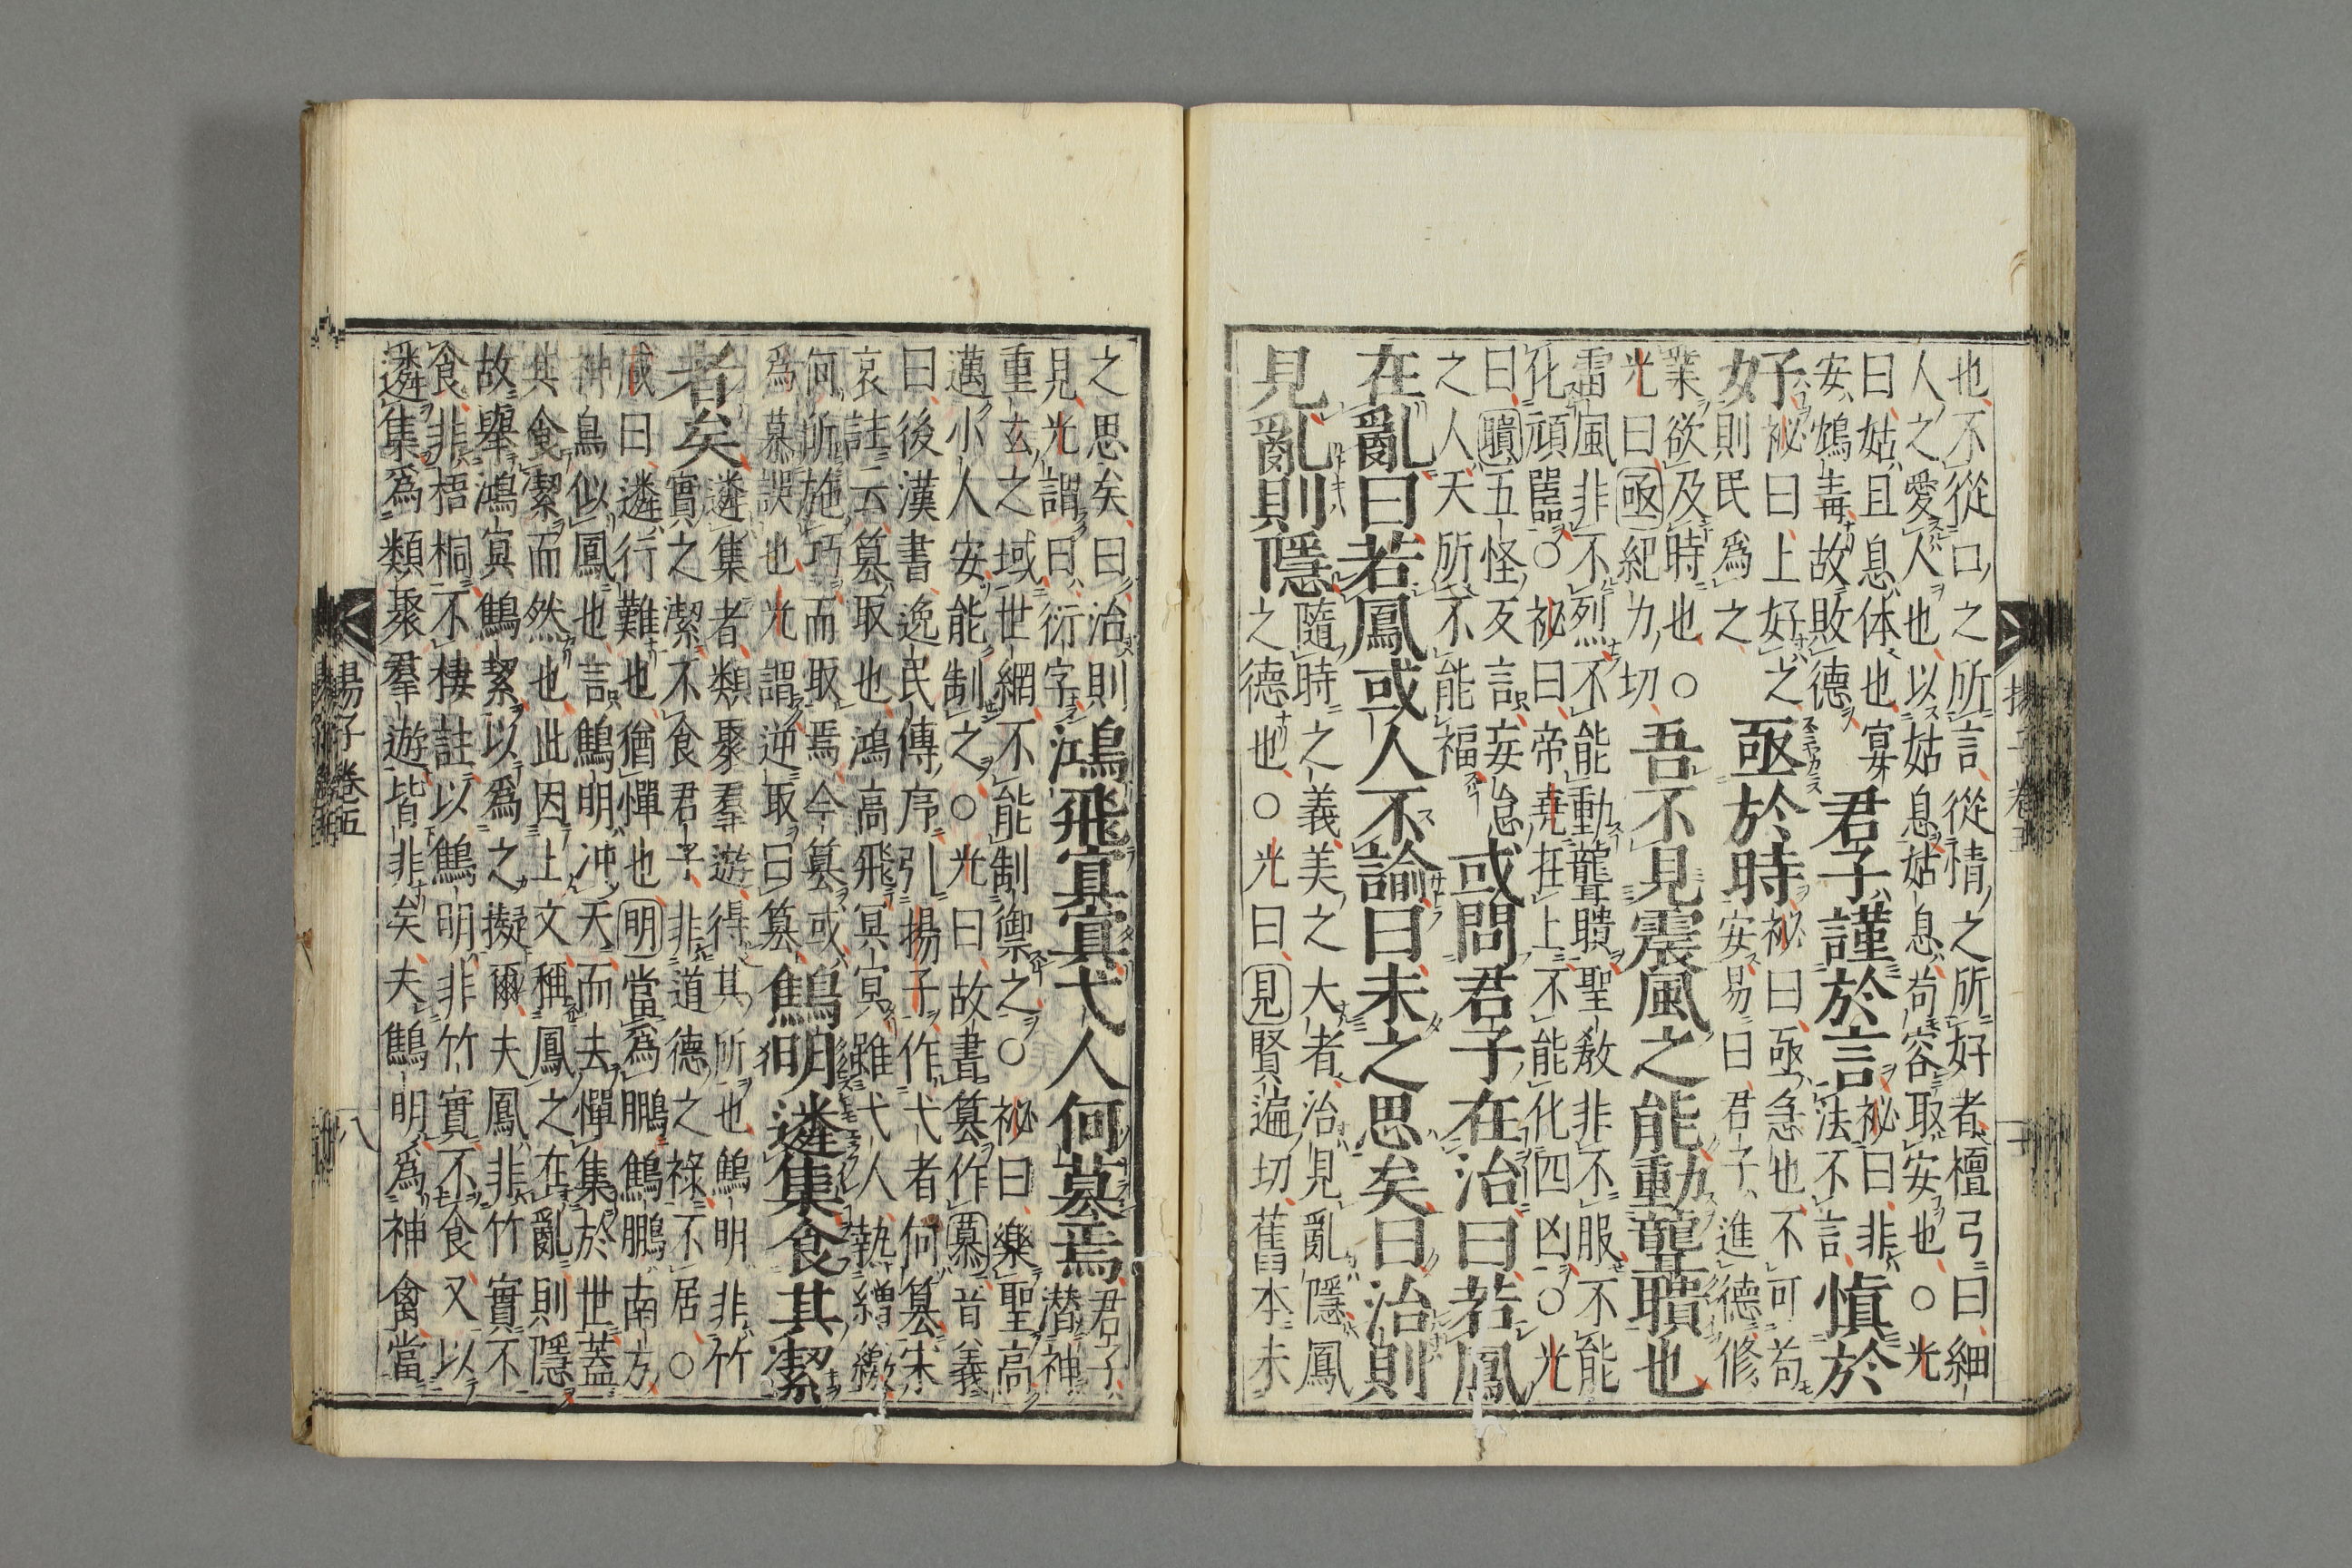 也不從口之所言從情之所好者檀弓曰細
人之愛人也以姑息姑息苟容取安也○光
曰姑且息体也宴
安鴆毒故敗德
君子謹於言
祕曰非
法不言
慎於
好
祕曰上好之
則民爲之
亟於時
祕曰亟急也不可苟
安易曰君子進德修
業欲及時也○
光曰亟紀力切
吾不見震風之能動聾聵也
雷風非不烈不能動聾聵聖教非不服不能
化頑嚚○祕曰帝堯在上不能化四凶○光
曰聵五怪反言妄怠
之人天所不能福
或問君子在治曰若鳳
在亂曰若鳳或人不諭曰未之思矣曰治則
見亂則隱
隨時之義美之大者治見亂隱鳳
之德也○光曰見賢遍切舊本未
之思矣曰治則
見光謂曰衍字
鴻飛冥冥弋人何慕焉
君子
潛神
重玄之域世網不能制禦之○祕曰樂聖高
邁小人安能制之○光曰故書篡作慕首義
曰後漢書逸民傳序引揚子作弋者何篡宋
哀註云篡取也鴻高飛冥冥雖弋人執繒繳
何所施巧而取焉今篡或
爲慕誤也光謂逆取曰篡
鷦明遴集食其潔
者矣
遴集者類聚羣遊得其所也鷦明非竹
實之潔不食君子非道德之祿不居○
咸曰遴行難也猶憚也明當爲鵬鷦鵬南方
神鳥似鳳也言鷦明冲天而去憚集於世蓋
其食潔而然也此因上文稱鳳之在亂則隱
故舉鴻冥鷦絜以爲之擬爾夫鳳非竹實不
食非梧桐不棲註以鷦明非竹實不食又以
遴集爲類聚羣遊皆非矣夫鷦明爲神禽當
揚子卷五
八